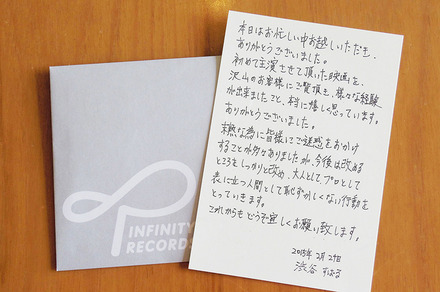 本日はお忙しい中お越しいただき、
ありがとうございました。
初めて主演させて頂いた映画を、
沢山のお客様にご覧頂き、様々な経験
が出来ましたこと、本当に嬉しく思っています。
ありがとうございました。
未熟な為に皆様にご迷惑をおかけ
することが多々ありましたが、今後は改める
ところをしっかりと改め、大人としてプロとして
表に立つ人間として恥ずかしくない行動を
とっていきます。
これからもどうぞ宜しくお願い致します。
2015年 2月 21日
渋谷 すばる
INFINITY
RECORDS